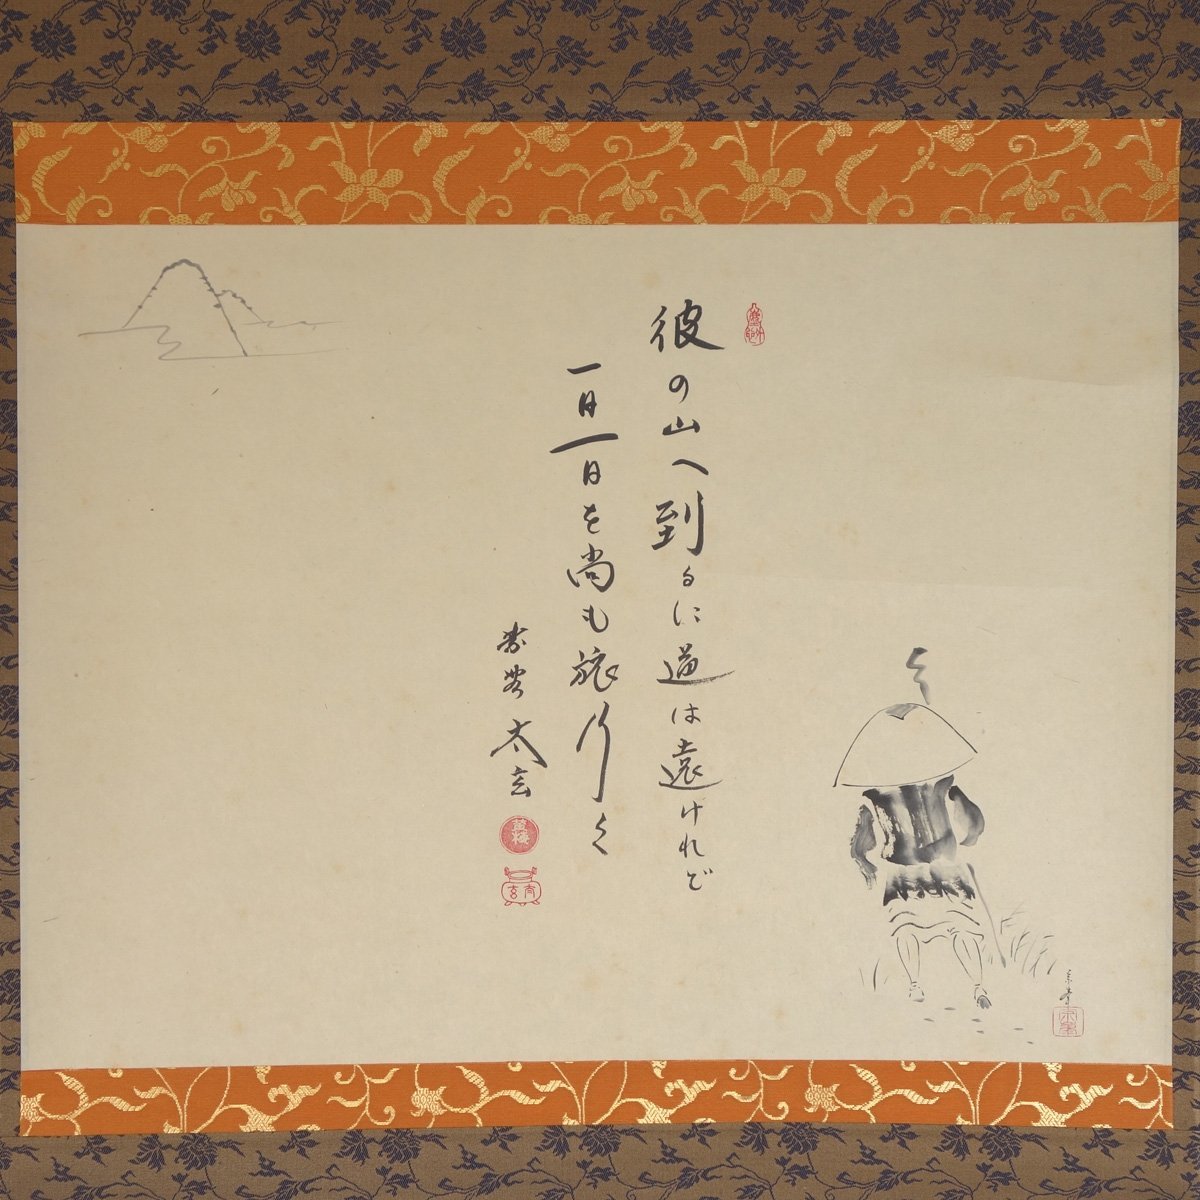 彼の山へ到るに道は遠けれど
一日一日を尚も旅行く
太玄
太玄